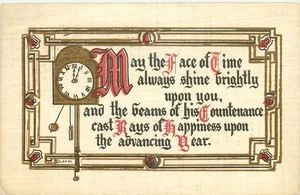 May the Face of Time
always shine brightly
upon you,
and the beams of his Countenance
cast Rays of Happiness upon
the advancing Year.